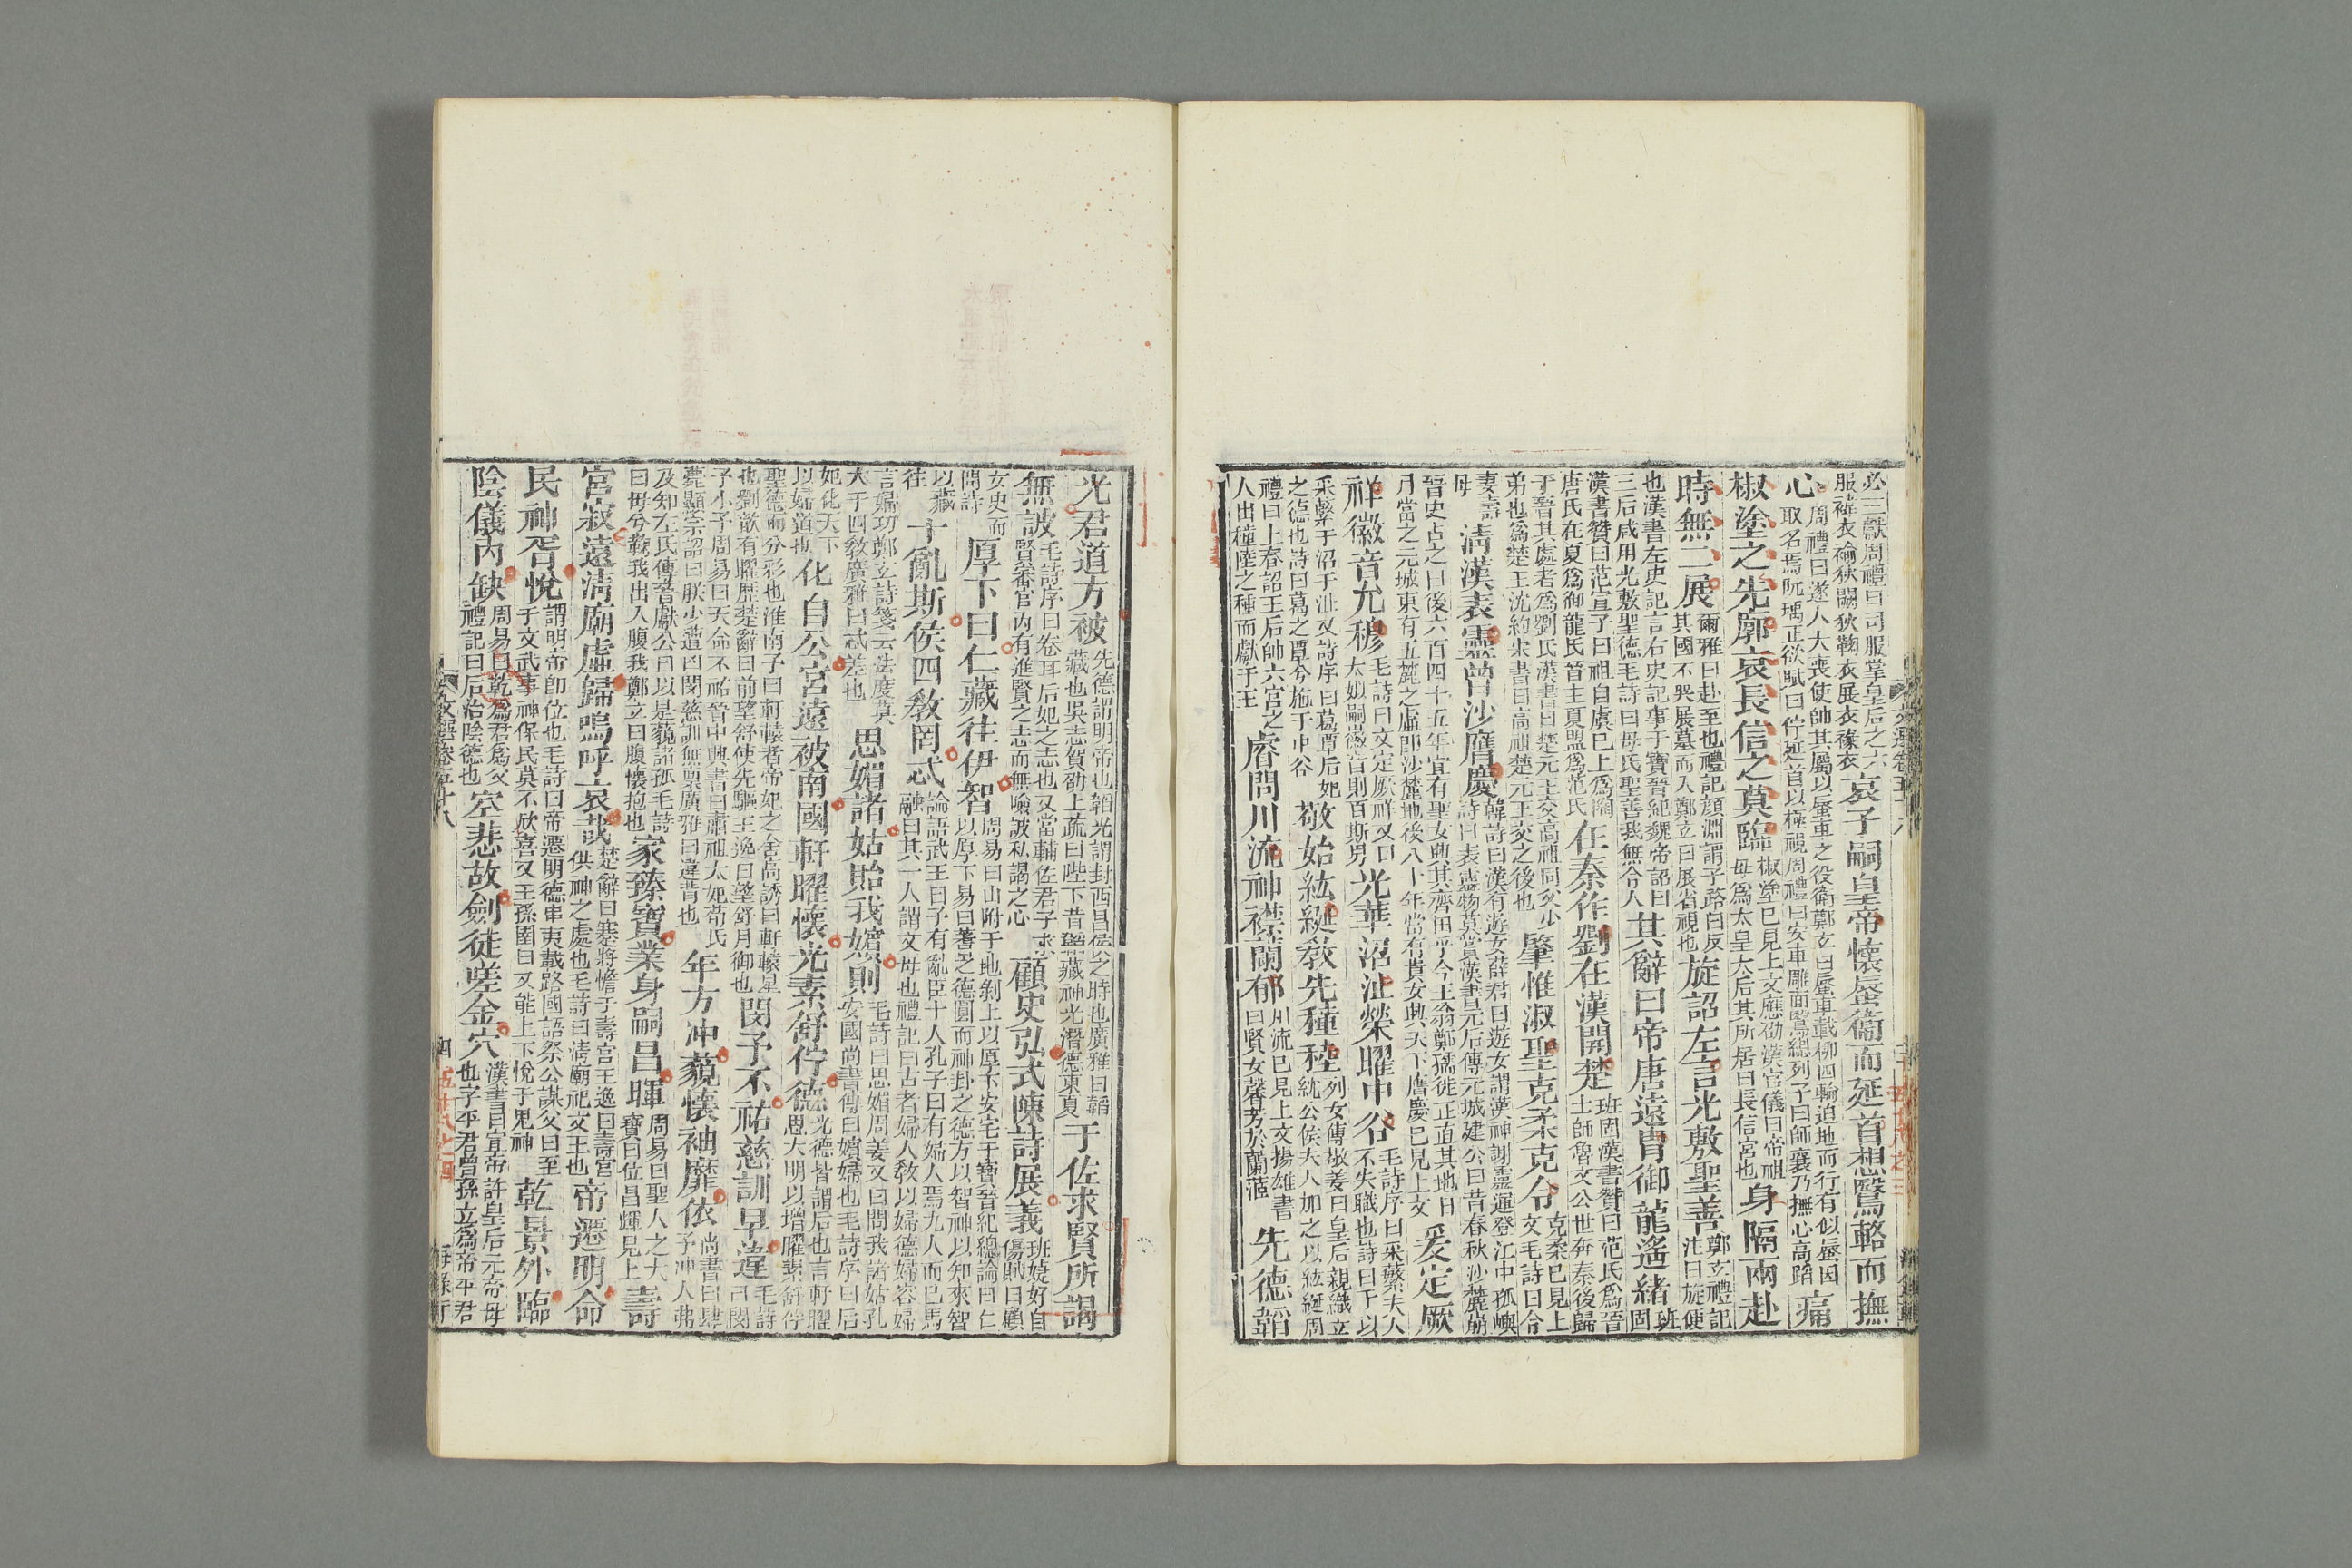 必三獻周禮曰司服掌皇后之六
服褘衣褕狄闕狄鞠衣展衣褖衣
哀子嗣皇帝懷蜃衛而延首想鷖輅而撫
心
周禮曰遂人大喪使帥其屬以蜃車之役衛鄭玄曰蜃車載柳四輪迫地而行有似蜃因
取名焉阮瑀正欲賦曰佇延首以極視周禮曰安車雕面鷖總列子曰師襄乃撫心高蹈
痛
椒塗之先廓哀長信之莫臨
椒塗已見上文應劭漢官儀曰帝祖
母爲太皇太后其所居曰長信宮也
身隔兩赴
時無二展
爾雅曰赴至也禮記顏淵謂子路曰反
其國不哭展墓而入鄭玄曰展省視也
旋詔左言光敷聖善
鄭玄禮記
注曰旋便
也漢書左史記言右史記事干寶晉紀魏帝詔曰
三后咸用光敷聖德毛詩曰母氏聖善我無令人
其辭曰帝唐遠胄御龍遙緒
班
固
漢書贊曰范宣子曰祖自虞已上爲陶
唐氏在夏爲御龍氏晉主夏盟爲范氏
在秦作劉在漢開楚
班固漢書贊曰范氏爲晉
士師魯文公世奔秦後歸
于晉其處者爲劉氏漢書曰楚元王交高祖同父少
弟也爲楚王沈約宋書曰高祖楚元王交之後也
肇惟淑聖克柔克令
克柔已見上
文毛詩曰令
妻壽
母
清漢表靈曾沙膺慶
韓詩曰漢有游女薛君曰遊女謂漢神謝靈運登江中孤嶼
詩曰表靈物莫賞漢書元后傳元城建公曰昔春秋沙麓崩
晉史占之曰後六百四十五年宜有聖女興其齊田乎今王翁孺徙正直其地日
月當之元城東有五麓之虛即沙麓地後八十年當有貴女興天下膺慶已見上文
爰定厥
祥徽音允穆
毛詩曰文定厥祥又曰
太姒嗣徽音則百斯男
光華沼沚榮曜中谷
毛詩序曰采蘩夫人
不失職也詩曰于以
采蘩于沼于沚又詩序曰葛覃后妃
之德也詩曰葛之覃兮施于中谷
敬始紘綖教先穜稑
列女傳敬姜曰皇后親織立
紞公侯夫人加之以紘綖周
禮曰上春詔王后帥六宮之
人出穜稑之種而獻于王
睿問川流神襟蘭郁
川流已見上文揚雄書
曰賢女馨芳於蘭茝
先德韜
光君道方被
先德謂明帝也韜光謂封西昌侯之時也廣雅曰韜
藏也吳志賀劭上疏曰陛下昔韜藏神光潛德東夏
于佐求賢所謁
無詖
毛詩序曰卷耳后妃之志也又當輔佐君子求
賢審官內有進賢之志而無險詖私謁之心
顧史弘式陳詩展義
班婕妤自
傷賦曰顧
女史而
問詩
厚下曰仁藏往伊智
周易曰山附于地剝上以厚下安宅干寶晉紀總論曰仁
以厚下易曰蓍之德圓而神卦之德方以智神以知來智
以藏
往
十亂斯俟四教罔忒
論語武王曰予有亂臣十人孔子曰有婦人焉九人而已馬
融曰其一人謂文母也禮記曰古者婦人教以婦德婦容婦
言婦功鄭玄詩箋云法度莫
大于四教廣雅曰忒差也
思媚諸姑貽我嬪則
毛詩曰思媚周姜又曰問我諸姑孔
安國尚書傳曰嬪婦也毛詩序曰后
妃化天下
以婦道也
化自公宮遠被南國軒曜懷光素舒佇德
光德皆謂后也言軒曜
思大明以增曜素舒佇
聖德而分彩也淮南子曰軒轅者帝妃之舍高誘曰軒轅星
也劉歆有曜歷楚辭曰前望舒使先驅王逸曰望舒月御也
閔予不祐慈訓早違
毛詩
曰閔
予小子周易曰天命不祐晉中興書曰肅祖太妃荀氏
薨顯宗詔曰朕少遭凶閔慈訓無禀廣雅曰違背也
年方冲藐懷袖靡依
尚書曰肆
予冲人弗
及知左氏傳晉獻公曰以是藐諸孤毛詩
曰母兮鞠我出入腹我鄭玄曰腹懷抱也
家臻寶業身嗣昌暉
周易曰聖人之大
寶曰位昌輝見上
壽
宮寂遠淸廟虛歸嗚呼哀哉
楚辭曰蹇將憺于壽宮王逸曰壽宮
供神之處也毛詩曰淸廟祀文王也
帝遷明命
民神胥悅
謂明帝卽位也毛詩曰帝遷明德串夷載路國語祭公謀父曰至
于文武事神保民莫不欣喜又王孫圉曰又能上下悅于鬼神
乾景外臨
陰儀內缺
周易曰乾爲君爲父
禮記曰后治陰德也
空悲故劍徒嗟金穴
漢書曰宣帝許皇后元帝母
也字平君曾孫立爲帝平君
文選卷五十八
四
海錄軒
五十八之四